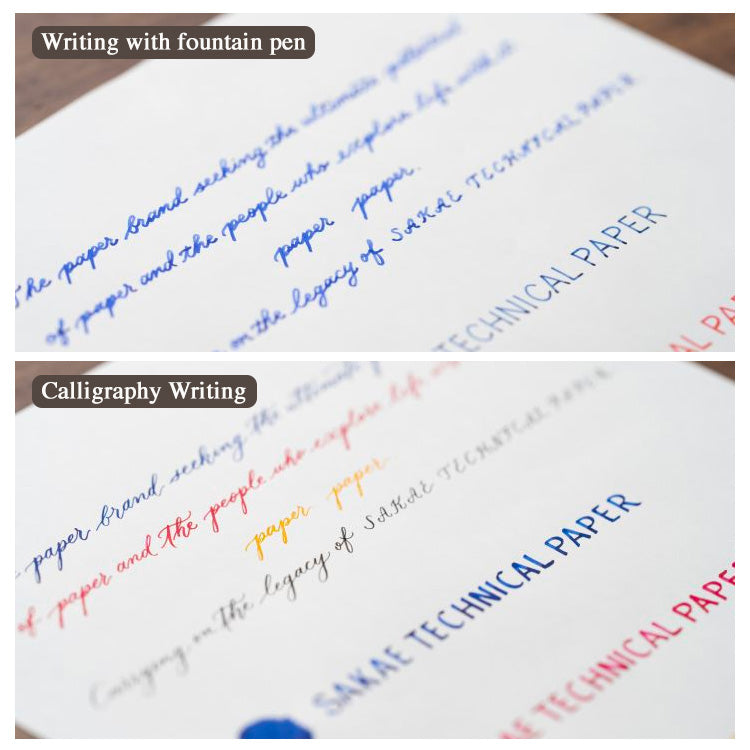 Writing with fountain pen
The paper brand seeking the ultimate potential
of paper and the people who explore life with it.
paper paper.
on the legacy of SAKAE TECHNICAL PAPER
TECHNICAL PAPER
AL PA
Calligraphy Writing
paper brand seeking the ultimate
of paper and the people who explore life
paper paper
Carrying on the legacy of SAKAE TECHNICAL PAPER
SAKAE TECHNICAL PAPER
AE TECHNICAL PAPER